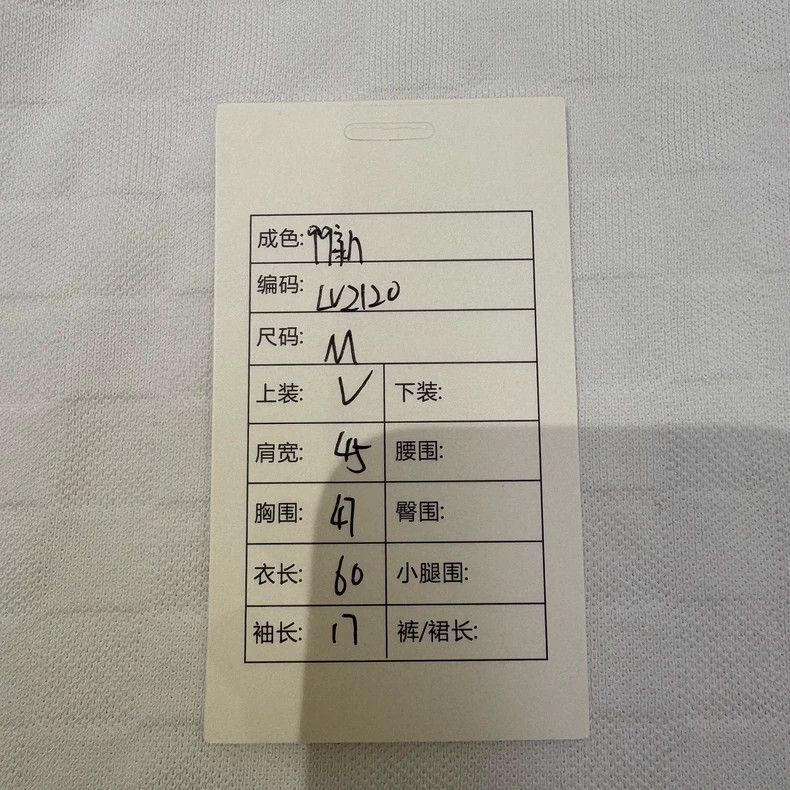 成色: 99新
编码: LV2120
尺码: M
上装: V 下装:
肩宽: 45 腰围:
胸围: 47 臀围:
衣长: 60 小腿围:
袖长: 17 裤/裙长: